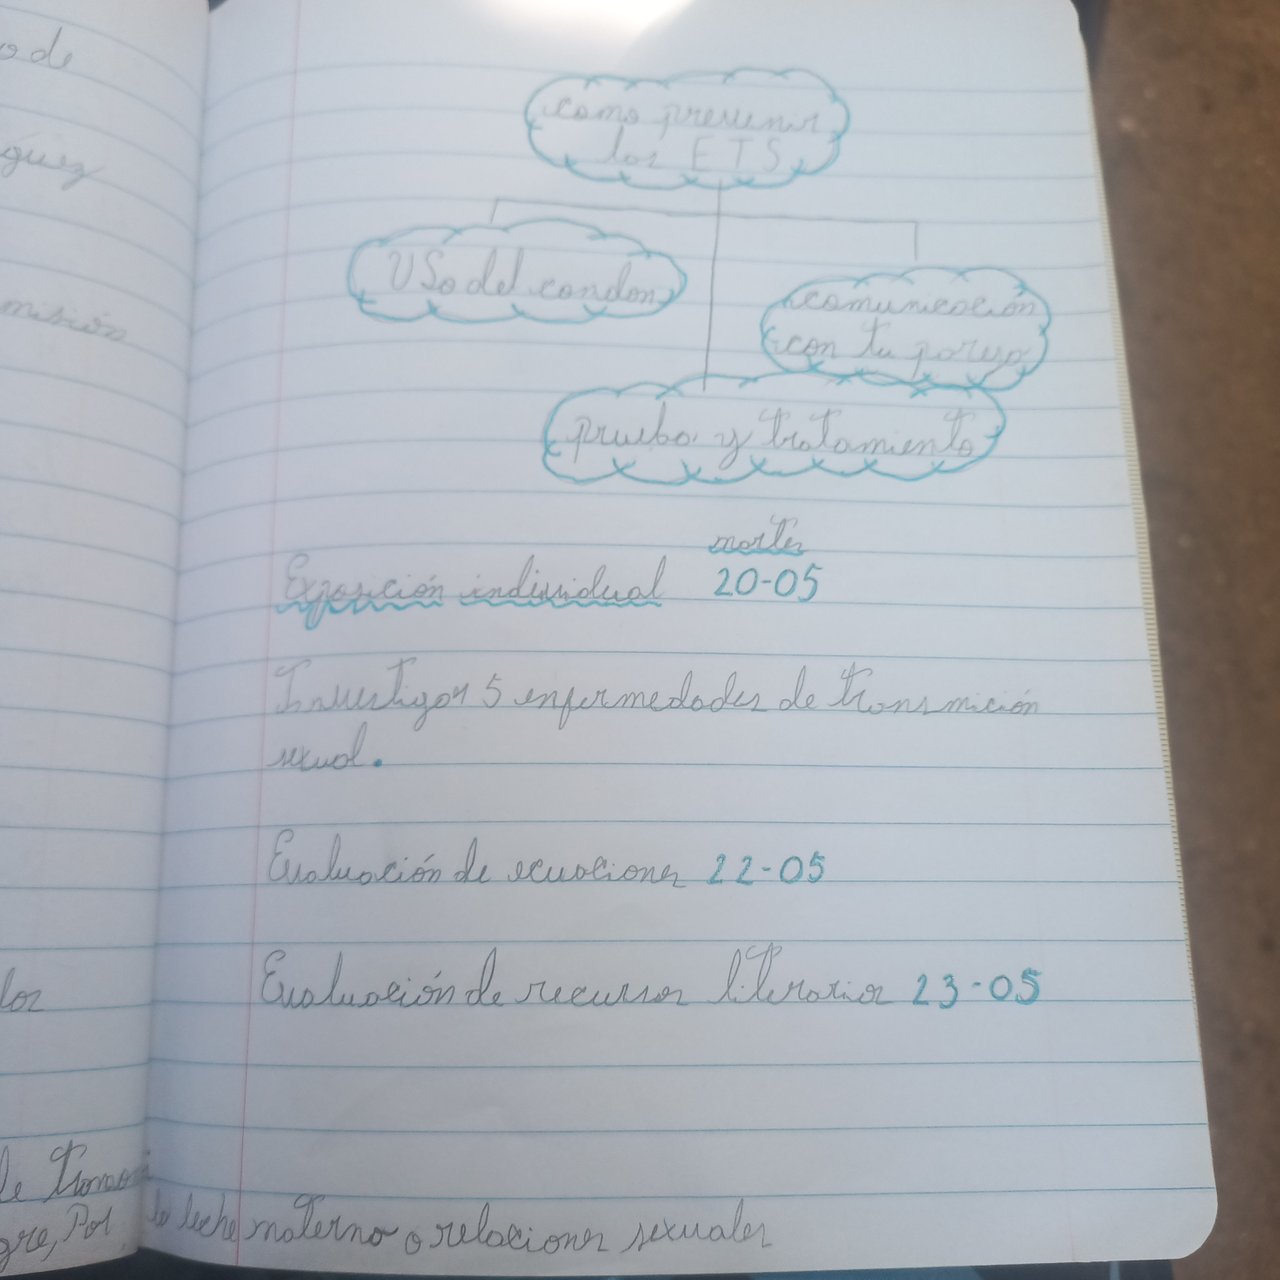 o de
guez
misión
los
de transmi
gre, Por
como prevenir
las ETS
USo del condon
comunicación
con tu pareja
prueba y tratamiento
martes
Exposición individual 20-05
Investigar 5 enfermedades de transmición
sexual.
Evaluación de ecuaciones 22-05
Evaluación de recursos literarios 23-05
la leche materna o relaciones sexuales